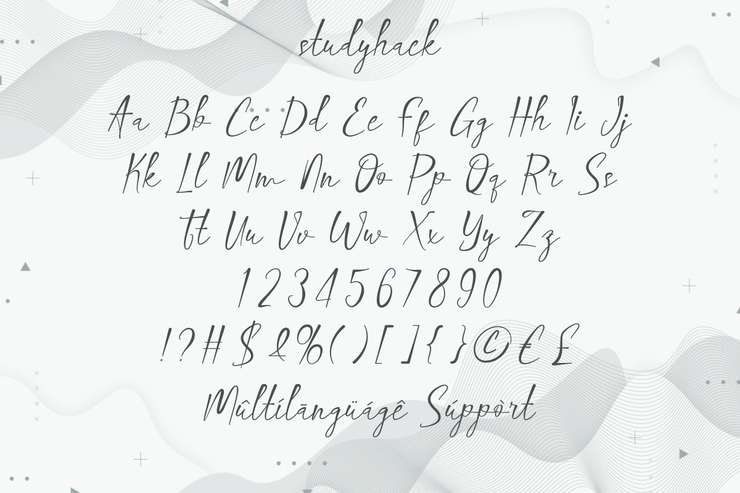 studyhack
Aa Bb Cc Dd Ee Ff Gg Hh Ii Jj
Kk Ll Mm Nn Oo Pp Qq Rr Ss
Tt Uu Vv Ww Xx Yy Zz
1234567890
!?#$&%()[]{}©€£
Mûltílãngüágê Súppòrt